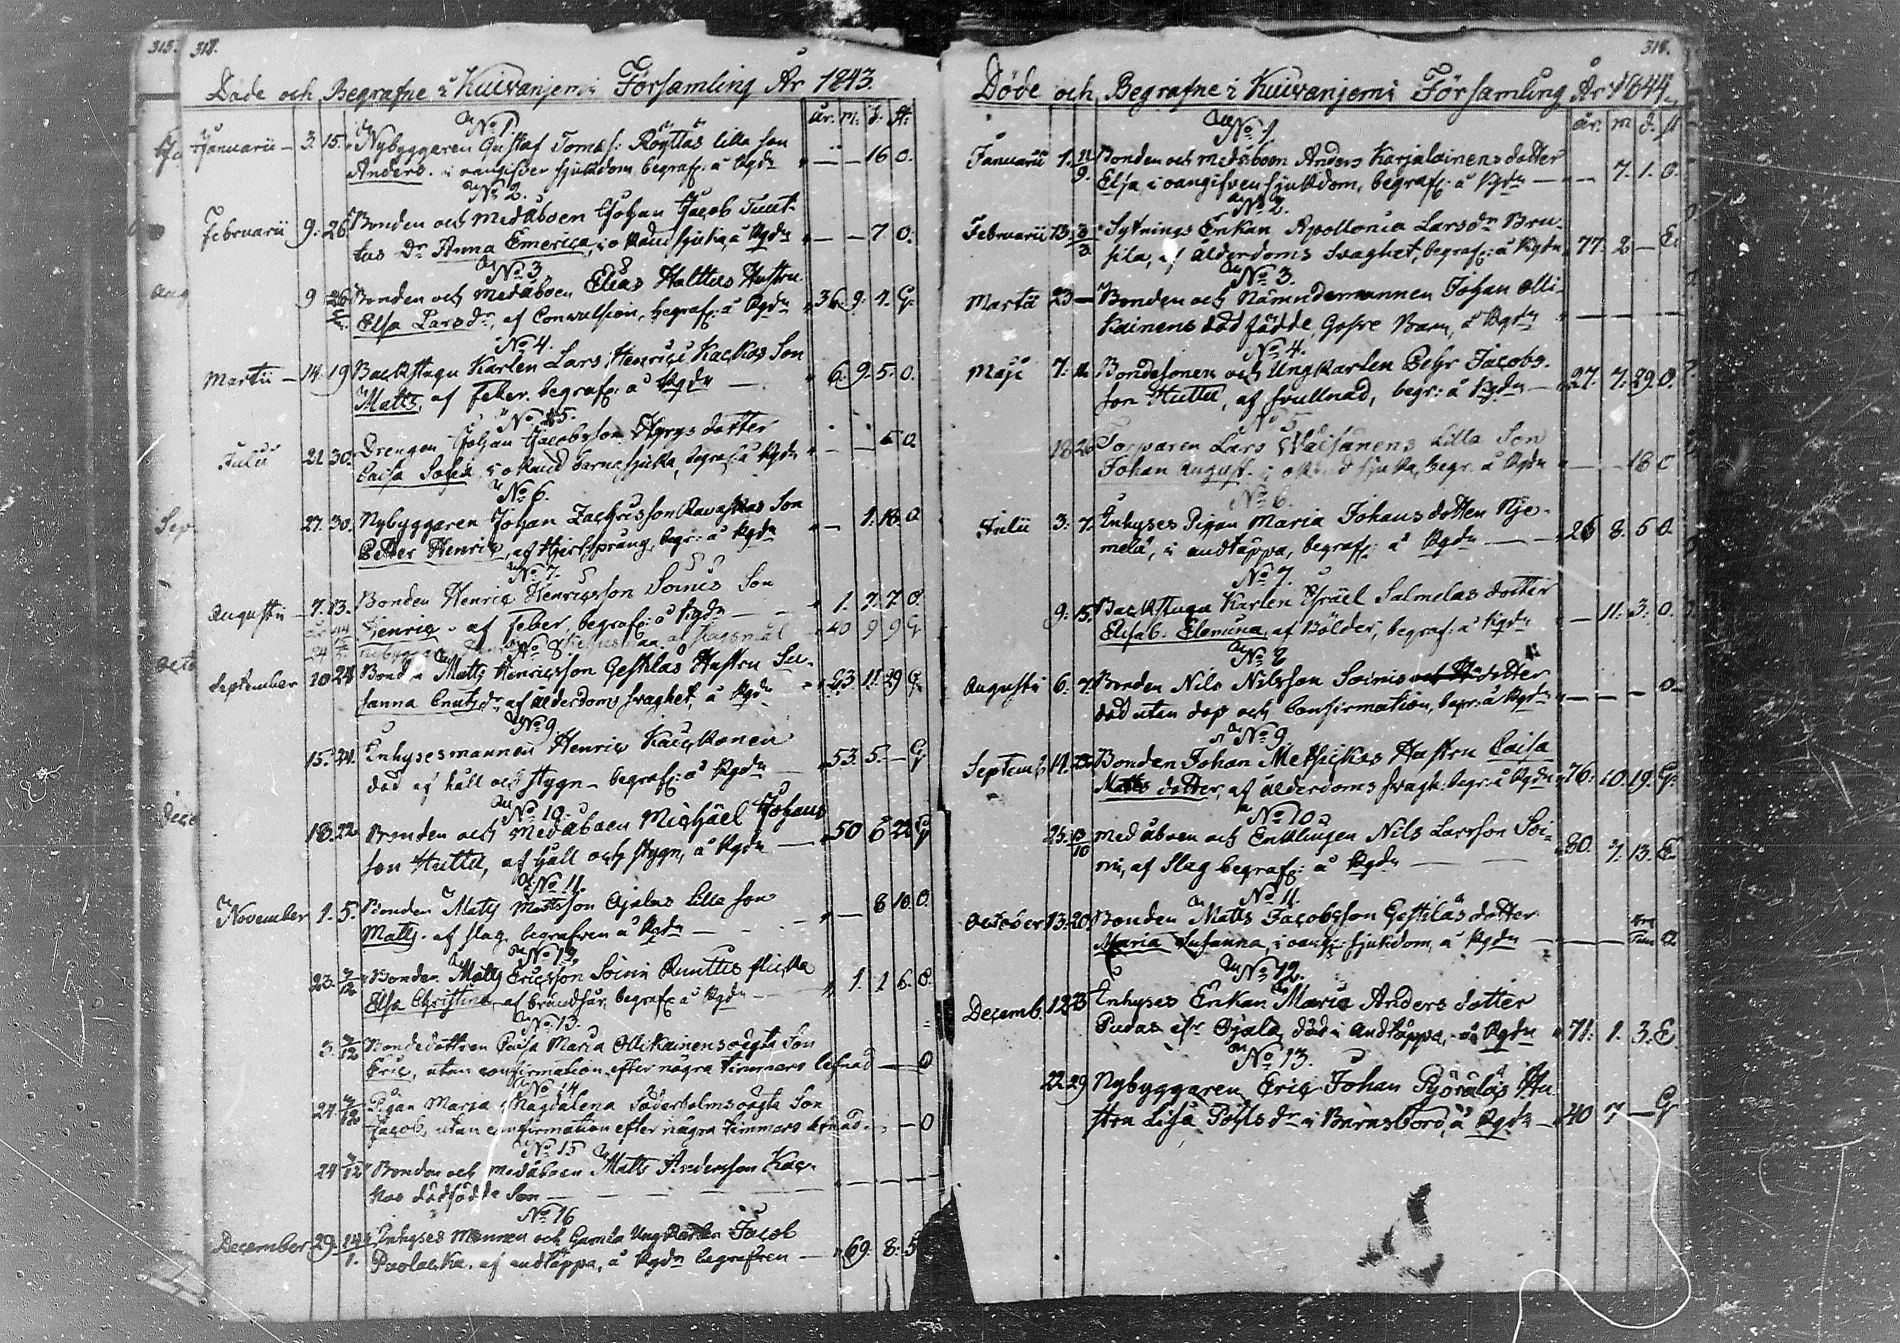 315. 318.
Döde och Begrafne i Kuivanjemi Församling År 1843.
år. m: d. st:
No 1.
Januarii 3. 15. Nybyggaren Gustaf Tomas: Röyttäs lilla son — — 16 O.
Anders. i oangifven sjukdom begraf: å Kgdn
No 2.
Februarii 9. 26. Bonden och medåboen Johan Jacob Tuut-
tus Dr Anna Emerica, i okänd sjuka, å Kgdn — — 7 O.
No 3.
9 26 Bonden och medåboen Elias Holttus Hustru
Elsa Larsdr, af Convulsion, begraf: å Kgdn 36. 9. 4. G.
No 4.
Martii 14. 19 Backstugu Karlen Lars Henrics Kackos Son
Matts, af Feber. begraf: å Kgdn — 6. 9. 5. O.
No 5.
Julii 21 30. Drengen Johan Jacobsson Hyrys dotter
Caisa Sofia, i okänd barnasjuka, begraf: å Kgdn
No 6.
27. 30. Nybyggaren Johan Zachrisson Son
Petter Henric, af Hjertsprång, begr: å Kgdn — 1. 18. O
No 7.
Augusti 7. 13. Bonden Henric Henricsson Soinis Son
Henric. af Feber, begraf: å Kgdn — 1. 7. 7. O.
40 9 9 G
No 8
September 10 24 Bonden Matts Henricsson Gestilas Hustru Su-
sanna Cnutsdr, af ålderdoms svaghet, å Kgdn 63 11. 29 G
No 9
15. 24. Enhysesmannen Henric Kaickonen
död af håll och stygn — begraf: å Kgdn 53. 5. — G
No 10.
18. 22. Bonden och medåboen Michäel Johans
son Huttu, af håll och stygn, å Kgdn — 50 6 22 G
No 11.
November 1. 5. Bonden Matts Mattsson Ojalas lilla son
Matts. af slag begrafven å Kgdn — 8 10. O
No 12.
23. Bonden Matts Ericsson Soini Ruuttis flicka
Elsa Christina, af brändsår, begraf: å Kgdn — 1. 1 6. O
No 13.
Bondedottren Caisa Maria Ollikainens oägta Son
Eric, utan confirmation efter några timmars lefnad — O
No 14
Pigan Maria Magdalena Söderholms oägta Son
Jacob, utan confirmation efter några timmars lefnad. — O
No 15
24 Bonden och medåboen Matts Andersson Kac-
kos dödfödde Son — — — —
No 16
December 29. Inhyses Mannen och Gamla Ungkarlen Jacob
af andtäppa, å Kgdn begrafven — 69. 8. 5
318.
Döde och Begrafne i Kuivanjemi Församling År 1844.
år. m d. st
No 1.
Januarii 1. Bonden och medåboen Anders Karjalainens dotter
Elsa i oangifven sjukdom, begraf: å Kgdn — — 7. 1. O.
No 2.
Februarii 13. Sytnings Enkan Apollonia Larsdr Bru-
sila, af ålderdoms Svaghet, begraf: å Kgdn 77. 2 — E.
No 3.
Martii 23 — Bonden och Nämndemannen Johan Olli-
kainens död födde Gosse Barn, å Kgdn — — —
No 4.
Maji 7. Bondesonen och Ungkarlen Pehr Jacobs-
son Huttu, af svullnad, begr: å Kgdn — 27. 7. 29. O.
No 5
18 26 Torparen Lars Väisänens Lilla Son
Johan August. i okänd sjuka, begr. å Kgdn — — 18 O
No 6.
Julii 3. 7. Inhyses Pigan Maria Johansdotter Nye-
melä, i andtäppa, begraf: å Kgdn — 26 8. 5 O.
No 7.
9. 15 Backstugu Karlen Isräel Salmelas dotter
Elisab. Elemina, af Bölder, begraf: å Kgdn — 11. 3. O.
No 8
Augusti 6. 7. Bonden Nils Nilsson Soinis dotter
död utan dop och Confirmation, begr. å Kgdn — — — O
No 9
Septemb. Bonden Johan Metsickes Hustru Caisa
Matts dotter, af ålderdoms svagh. begr. å Kgdn 76. 10. 19. G.
No 10
25. Medåboen och Enklingen Nils Larsson Soi-
ni, af Slag begraf: å Kgdn — — 80. 7. 13. E.
No 11.
October 13. 20. Bonden Matts Jacobsson Gestiläs dotter
Maria Susanna, i oang: sjukdom, å Kgdn — — O
No 12.
Decemb. Enhyses Enkan Maria Anders dotter
Pudas elr Ojala, död i Andtäppa, å Kgdn 71. 1. 3. E.
No 13.
22 29 Nybyggaren Eric Johan Pyöräläs Hu
stru Lisa Påhlsdr i Barnsbörd, å Kgdn — 40 7 — G